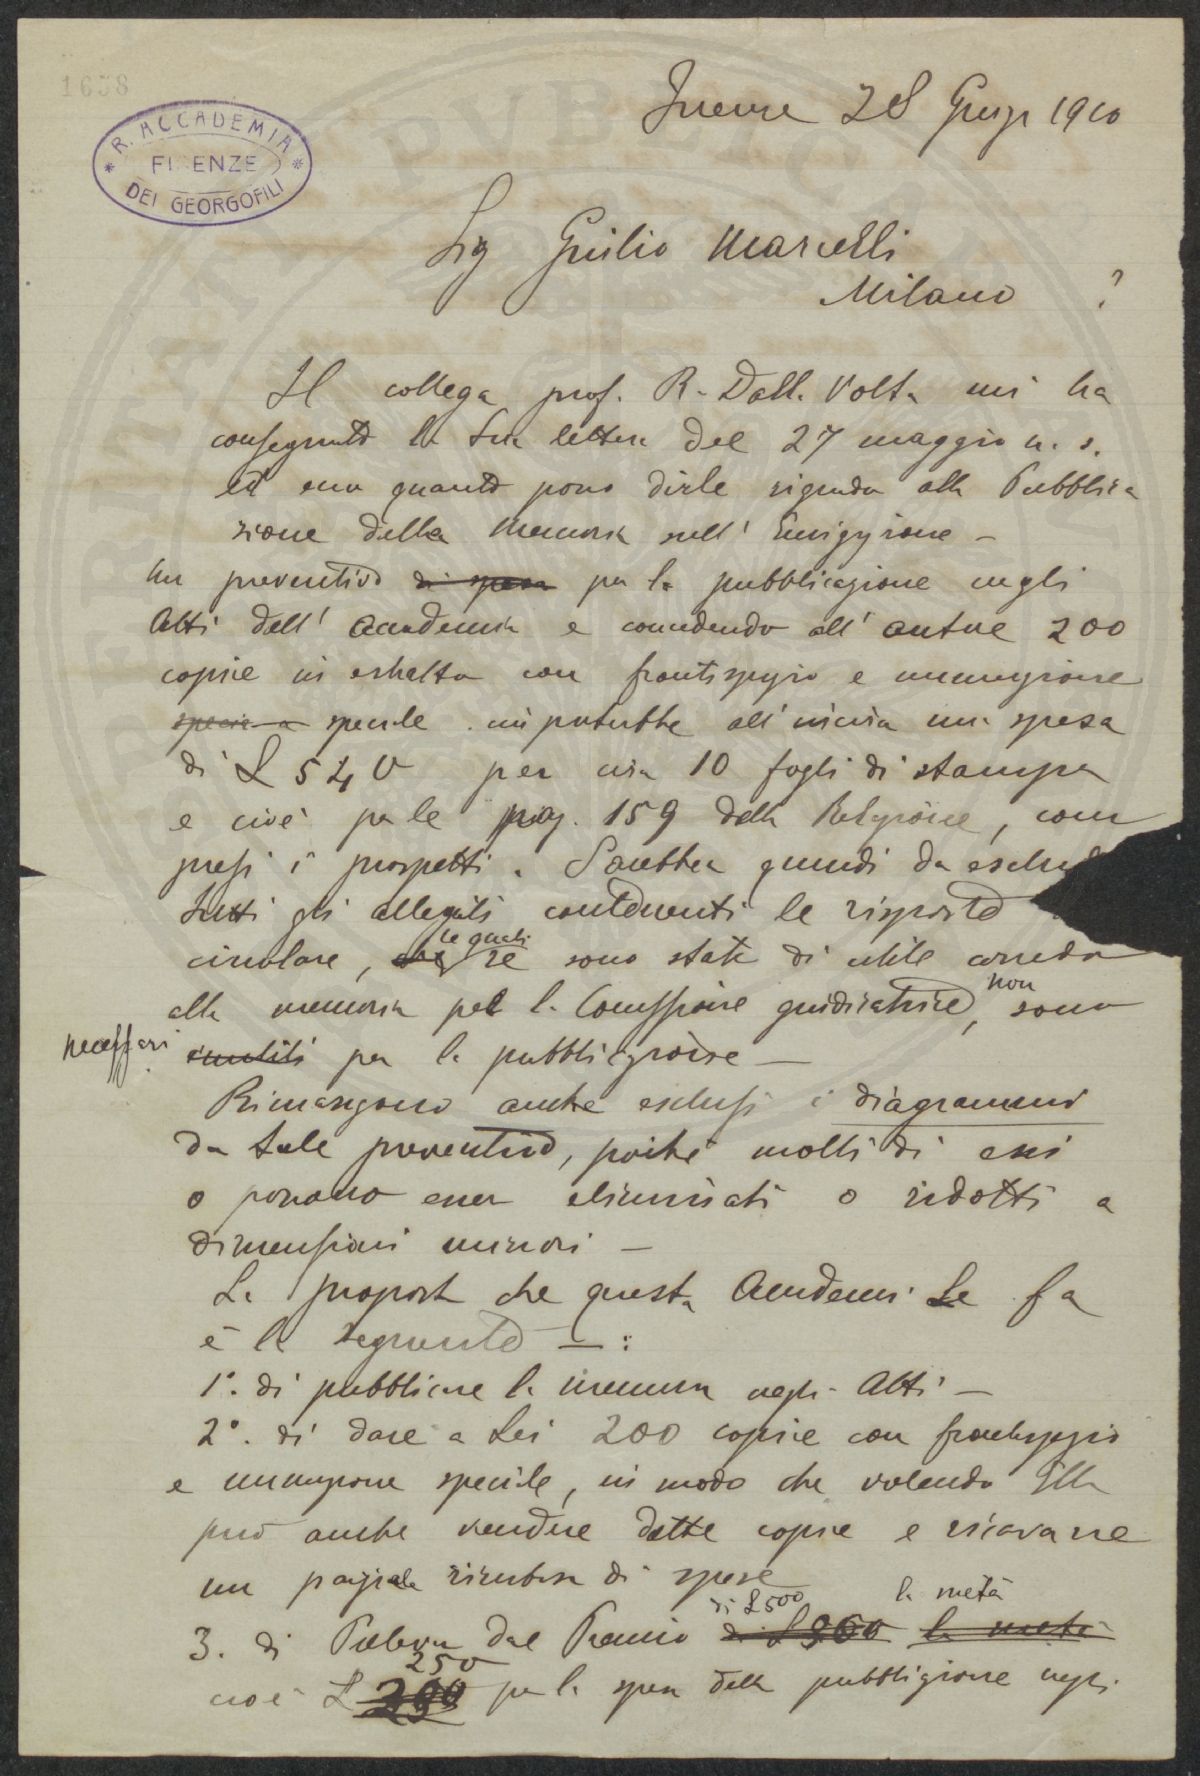 1658
R. ACCADEMIA
FIRENZE
DEI GEORGOFILI
Firenze 28 Giug 1910
Sig Giulio Marcelli
Milano ?
Il collega prof. R. Dalla Volta mi ha
consegnato la Sua lettera del 27 maggio u. s.
ed ecco quanto posso dirle riguardo alla Pubblica
zione della Memoria sull' Emigrazione –
Un preventivo di spesa per la pubblicazione negli
Atti dell' Accademia e concedendo all' autore 200
copie in estratto con frontispizio e numerazione
speciale importerebbe all' incirca una spesa
di L 540 per circa 10 fogli di stampa
e cioè per le pag. 159 della Relazione, com
presi i prospetti. Sarebbero quindi da esclud
tutti gli allegati contenenti le risposte
circolare, le quali se sono state di utile corredo
alla memoria per la Commissione giudicatrice, non sono
necessari inutili per la pubblicazione –
Rimangono anche esclusi i diagrammi
da tale preventivo, poichè molti di essi
o possono esser eliminati o ridotti a
dimensioni minori –
La proposta che questa Accademia Le fa
è la seguente – :
1°. di pubblicare la memoria negli Atti –
2°. di dare a Lei 200 copie con frontespizio
e numerazione speciale, in modo che volendo Ella
può anche vendere dette copie e ricavarne
un parziale rimborso di spese
di L 500 la metà
3. di Prelevare dal Premio la metà
250
cioè L per la spesa della pubblicazione negli